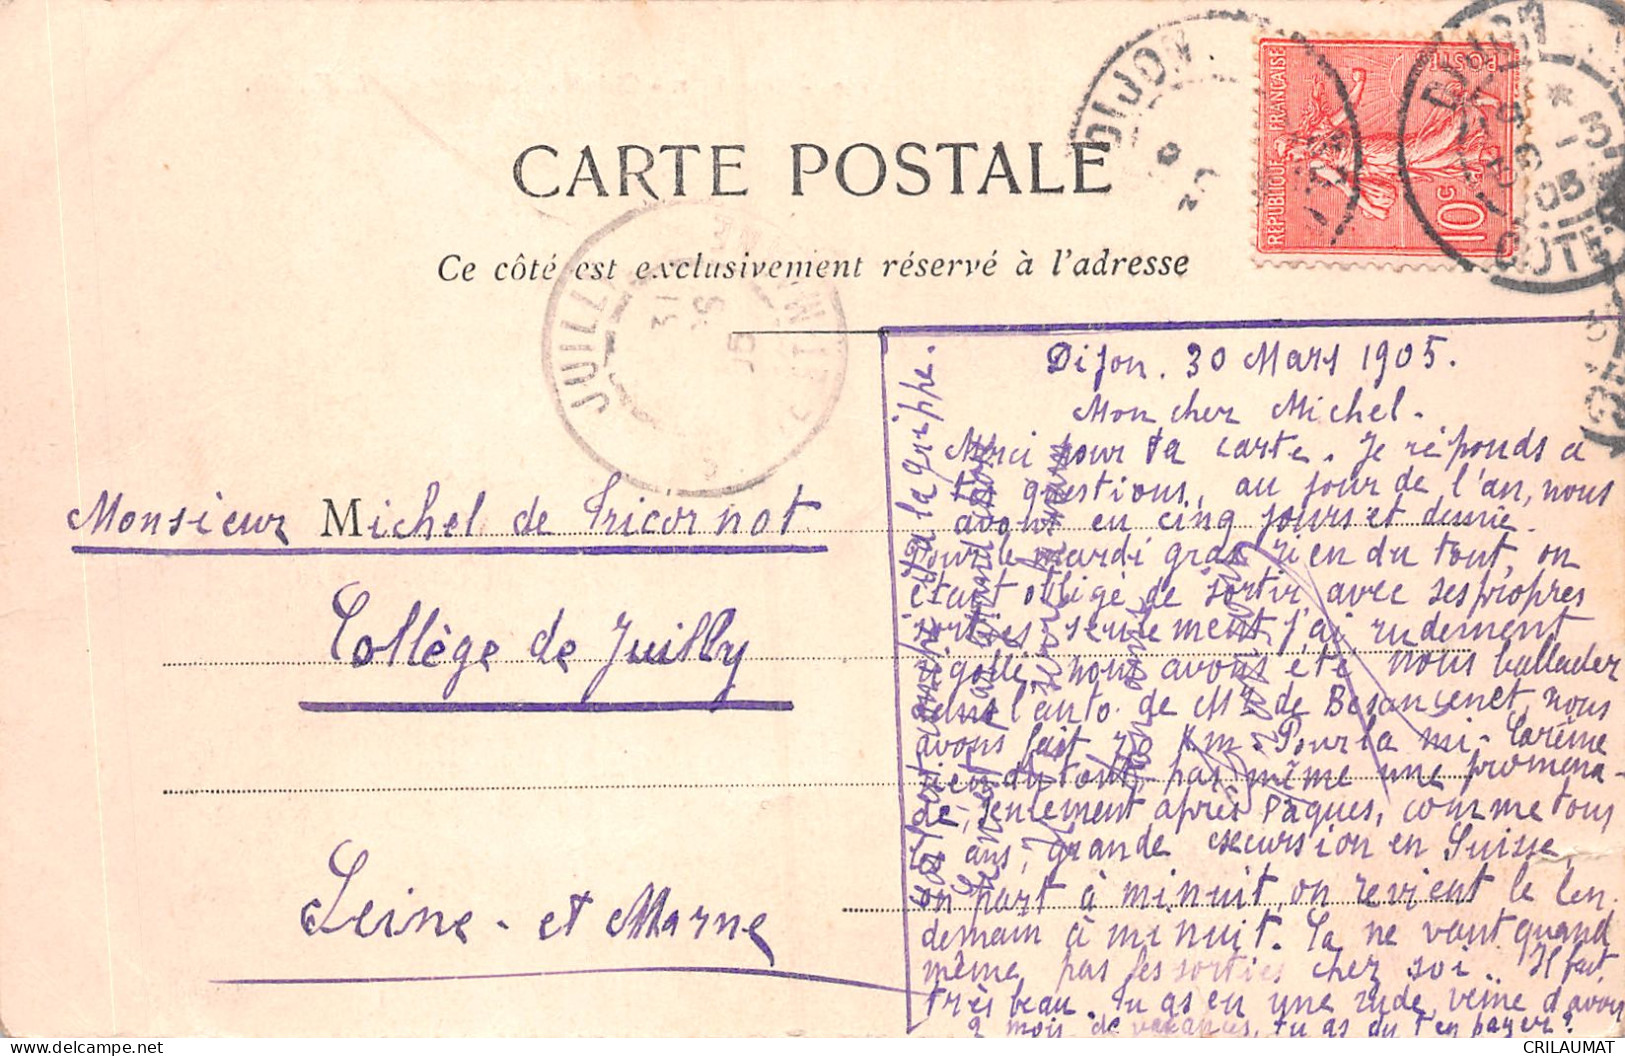 CARTE POSTALE
Ce côté est exclusivement réservé à l'adresse
DIJON
RÉPUBLIQUE FRANÇAISE
POSTES
10c
DIJON
COTE
JUILLY
Dijon. 30 Mars 1905.
Mon cher Michel.
Merci pour ta carte. Je réponds a
tes questions, au jour de l'an, nous
avons eu cinq jours et demie.
Pour le mardi gras rien du tout, on
étant obligé de sortir avec ses propres
sorties seulement j'ai rudement
rigollé, nous avons été nous ballader
dans l'auto de Mr de Besancenet, nous
avons fait 70 Km. Pour la mi-Carême
rien du tout, pas même une promena-
de, seulement après Pâques, comme tous
les ans, grande excursion en Suisse,
on part à minuit, on revient le len
demain à minuit. Ca ne vaut quand
même pas les sorties chez soi. Il fait
très beau. Tu as eu une rude veine d'avoir
2 mois de vacances, tu as du t'en payer?
Monsieur Michel de Tricornot
Collège de Juilly
Seine-et Marne
la grippe.
delcampe.net
CRILAUMAT